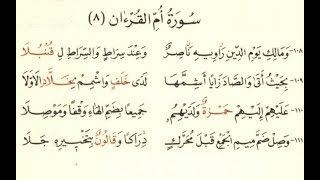 سُورَةُ أُمِّ الْقُرْءَانِ (٨)
١٠٨- وَمَالِكِ يَوْمِ الدِّينِ رَاوِيهِ نَاصِرٌ وَعِنْدَ سِرَاطٍ وَالسِّرَاطِ لِ قُنْبُلَا
١٠٩- بِحَيْثُ أَتَى وَالصَّادَ زَايًا أَشِمَّهَا لَدَى خَلَفٍ وَاشْمِمْ لِخَلَّادِ الَاوَّلَا
١١٠- عَلَيْهِمْ إِلَيْهِمْ حَمْزَةٌ وَلَدَيْهِمُ جَمِيعًا بِضَمِّ الْهَاءِ وَقْفًا وَمَوْصِلَا
١١١- وَصِلْ ضَمَّ مِيمِ الْجَمْعِ قَبْلَ مُحَرَّكٍ دِرَاكًا وَقَالُونٌ بِتَخْيِيرِهِ جَلَا